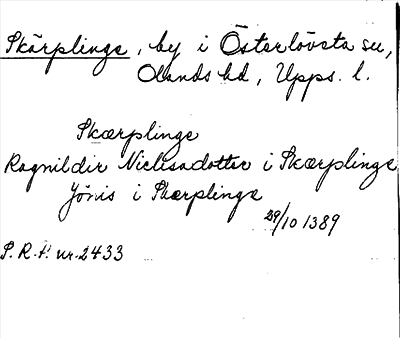 Skärplinge, by i Österlövsta sn,
Olands hd, Upps. l.
Skærplinge
Ragnildir Niclisadotter i Skærplinge
Jönis i Skærplinge
29/10 1389
S.R.P. nr. 2433